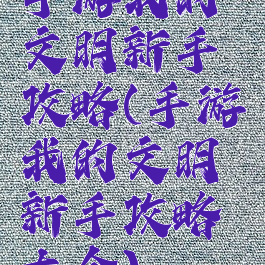 手游我的
文明新手
攻略(手游
我的文明
新手攻略
大全)